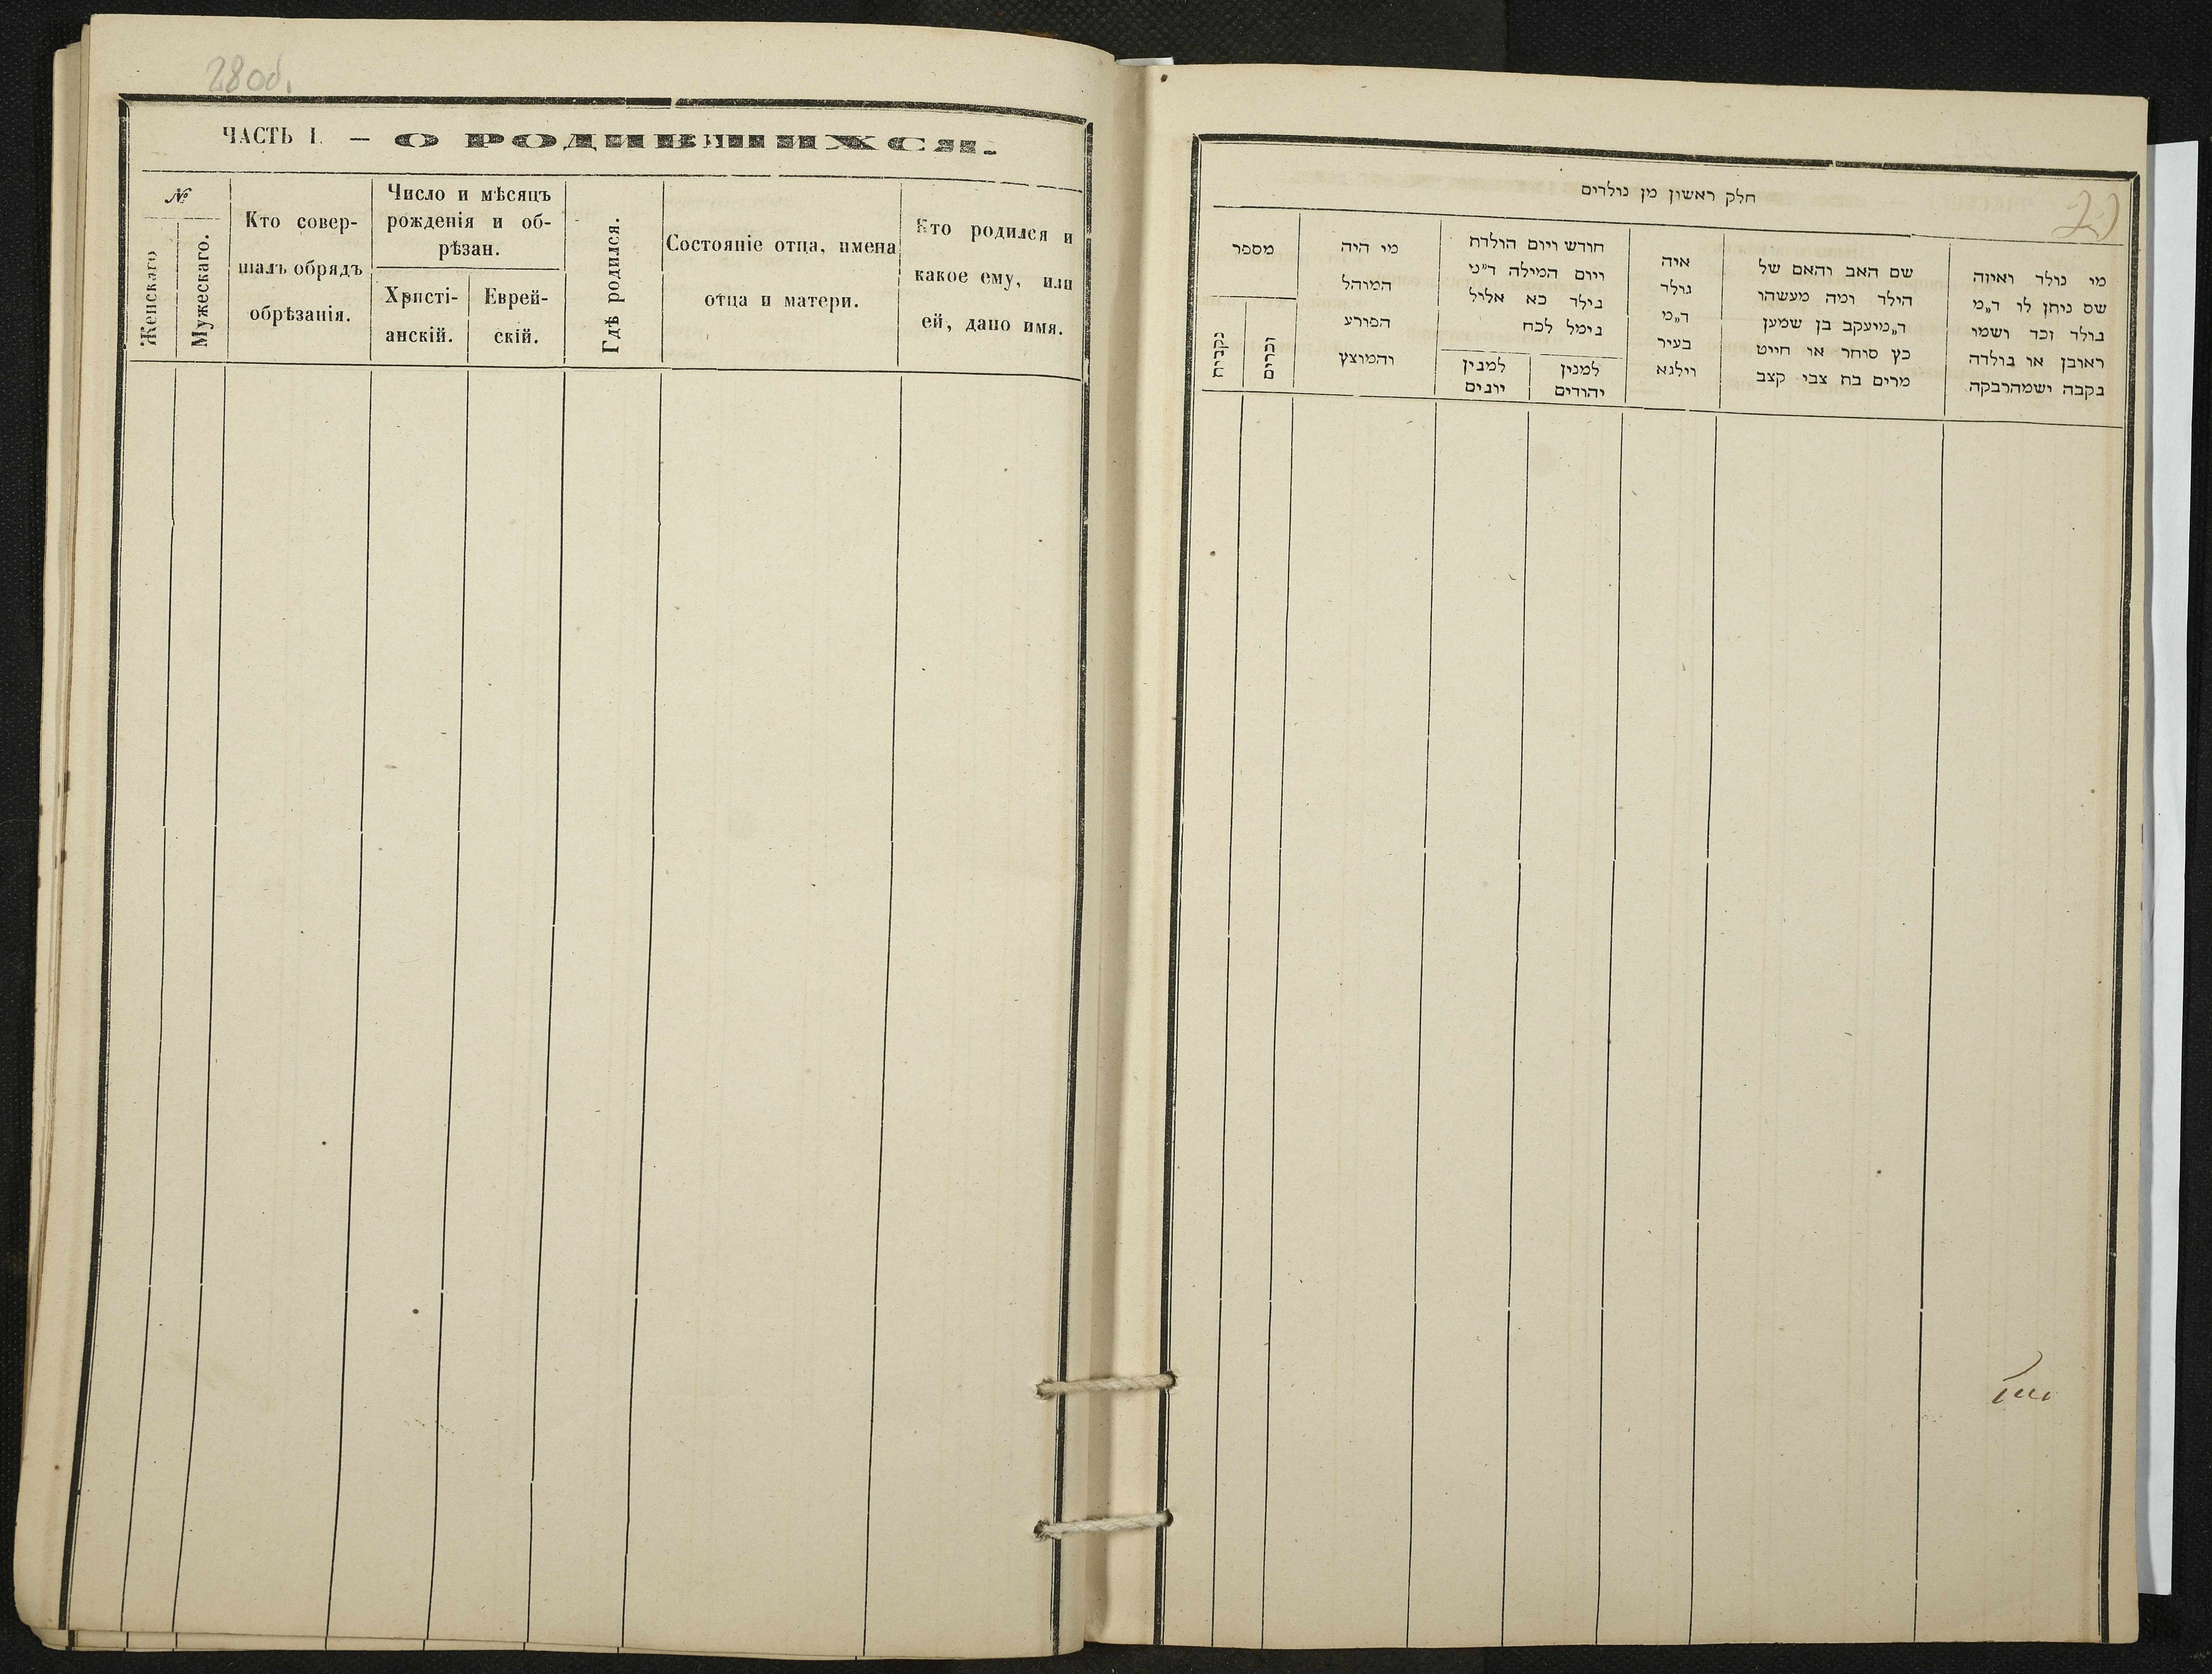 28 об.
ЧАСТЬ I. — О РОДИВШИХСЯ.
№
Женскаго
Мужескаго.
Кто совер-
шалъ обрядъ
обрѣзанія.
Число и мѣсяцъ
рожденія и об-
рѣзан.
Христі-
анскій.
Еврей-
скій.
Гдѣ родился.
Состояніе отца, имена
отца и матери.
Кто родился и
какое ему, или
ей, дано имя.
חלק ראשון מן נולדים
מי נולד ואיזה
שם ניתן לו ד״מ
נולד זכר ושמו
ראובן או נולדה
נקבה ושמה רבקה
שם האב והאם של
הילד ומה מעשהו
ד״מ יעקב בן שמען
כץ סוחר או חייט
מרים בת צבי קצב
איה
נולד
ד״מ
בעיר
וילנא
חודש ויום הולדת
ויום המילה ד״מ
נילד כא אלול
נימל לכח
למנין
יהודים
למנין
יונים
מי היה
המוהל
הפורע
והמוצץ
מספר
זכרים
נקבות